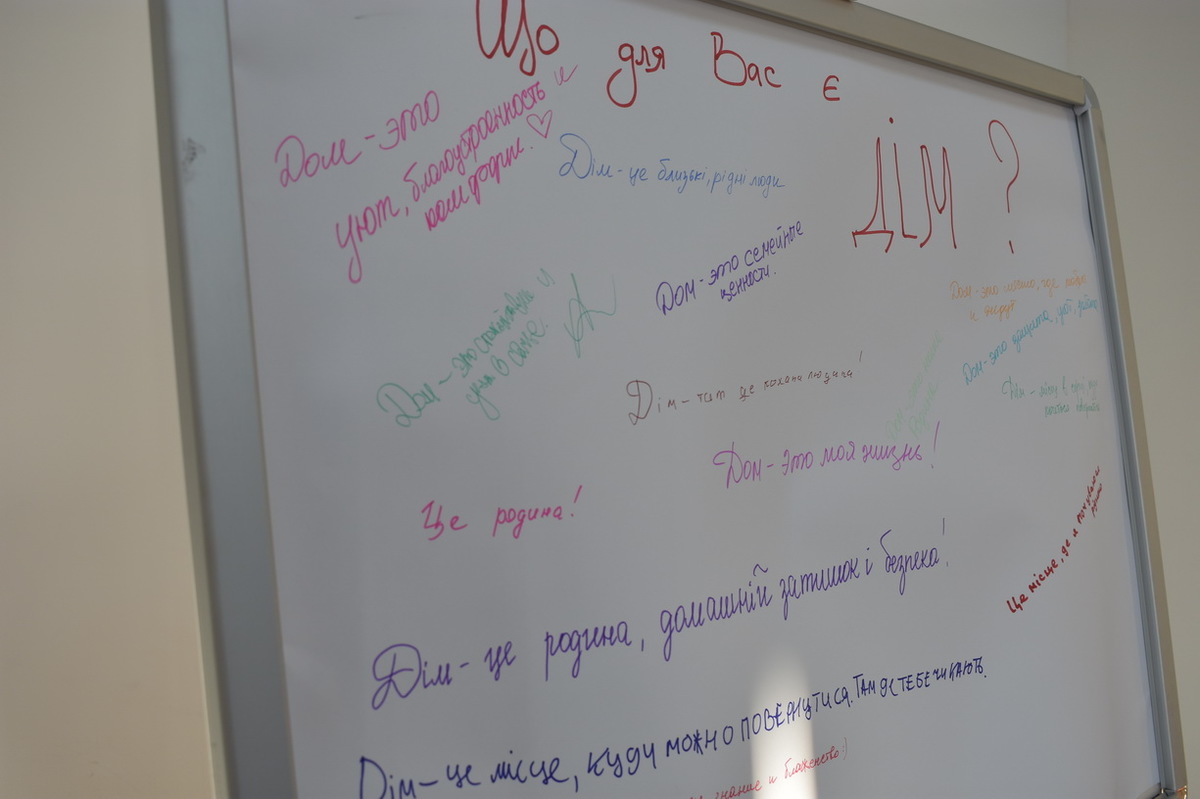 Що для Вас є
ДІМ ?
Дом - это
уют, благоустроенность и
комфорт. ♡
Дім - це близькі, рідні люди
Дом - это семейные
ценности.
Дом - это спокойствие
Дом - это место, где тебя
Дом - это защита, уют,
Дім - там де кохана людина!
Дом - это моя жизнь!
Це родина!
Це місце, де я почуваюся
Дім - це родина, домашній затишок і безпека!
Дім - це місце, куди можно повернутися. Там де тебе чикають.
знание и блаженство :)